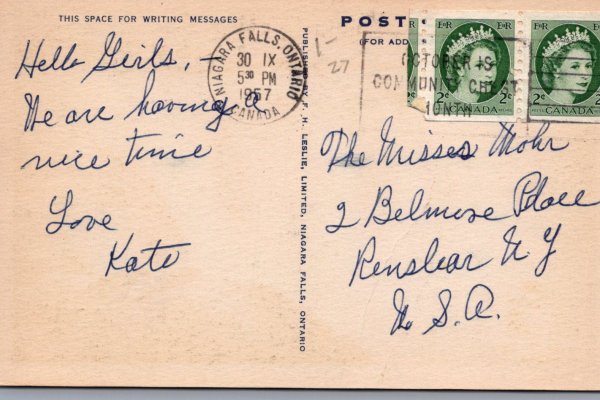 THIS SPACE FOR WRITING MESSAGES
Hello Girls, -
We are having a
nice time
Love
Kate
NIAGARA FALLS, ONTARIO
30 IX
5 30 PM
1957
CANADA
PUBLISHED BY F. H. LESLIE, LIMITED, NIAGARA FALLS, ONTARIO
POSTS
(FOR ADD
1-
27
OCTOBER IS
COMMUNITY CHEST
MONTH
E II R
E II R
2¢ CANADA 2¢
2¢ CANADA
The Misses Mohr
2 Belmore Place
Renslear N Y
U. S. A.